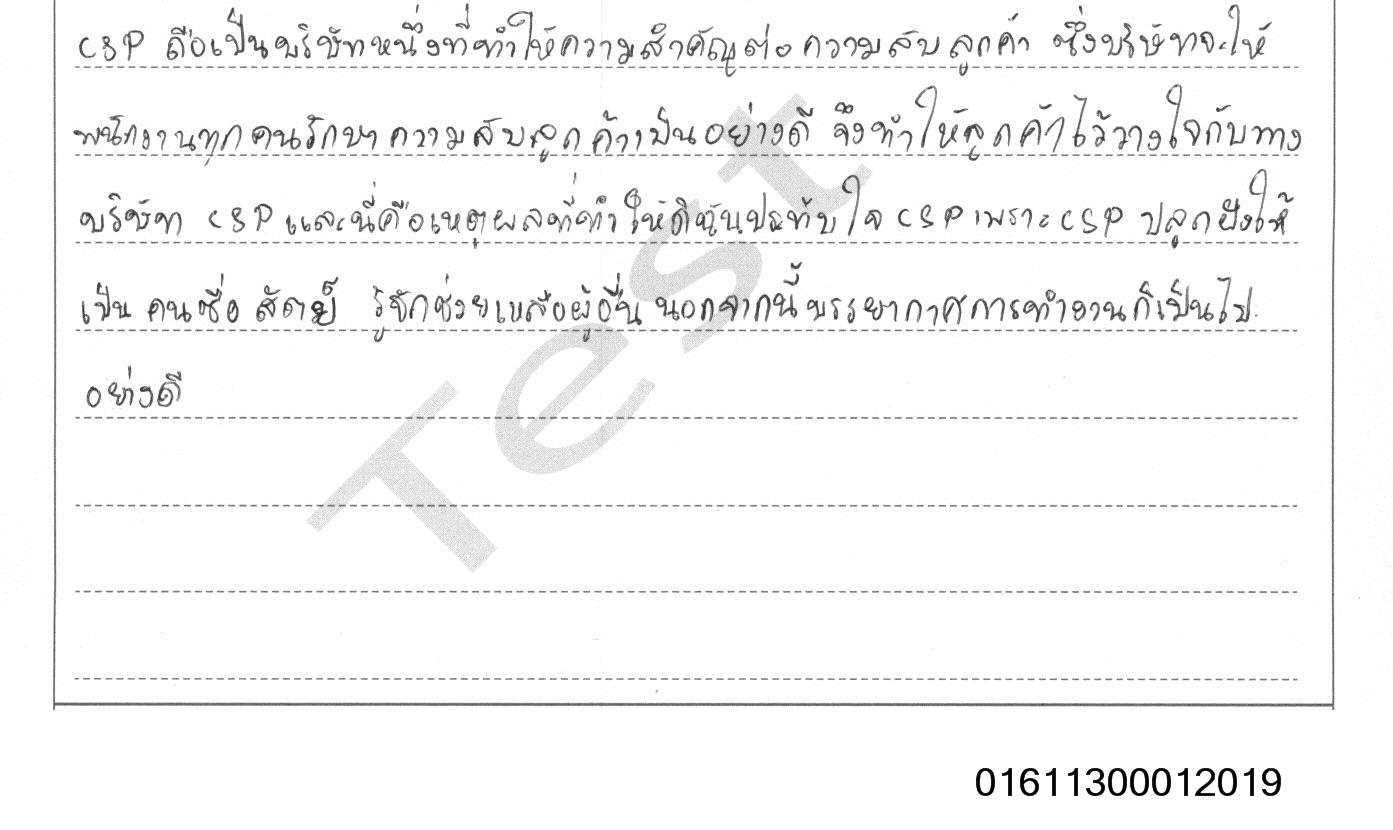 CSP ถือเป็นบริษัทหนึ่งที่ทำให้ความสำคัญต่อความลับลูกค้า ซึ่งบริษัทจะให้
พนักงานทุกคนรักษาความลับลูกค้าเป็นอย่างดี จึงทำให้ลูกค้าไว้วางใจกับทาง
บริษัท CSP และนี่คือเหตุผลที่ทำให้ดิฉันประทับใจ CSP เพราะ CSP ปลูกฝังให้
เป็นคนซื่อสัตย์ รู้จักช่วยเหลือผู้อื่น นอกจากนี้บรรยากาศการทำงานก็เป็นไป
อย่างดี
Test
01611300012019